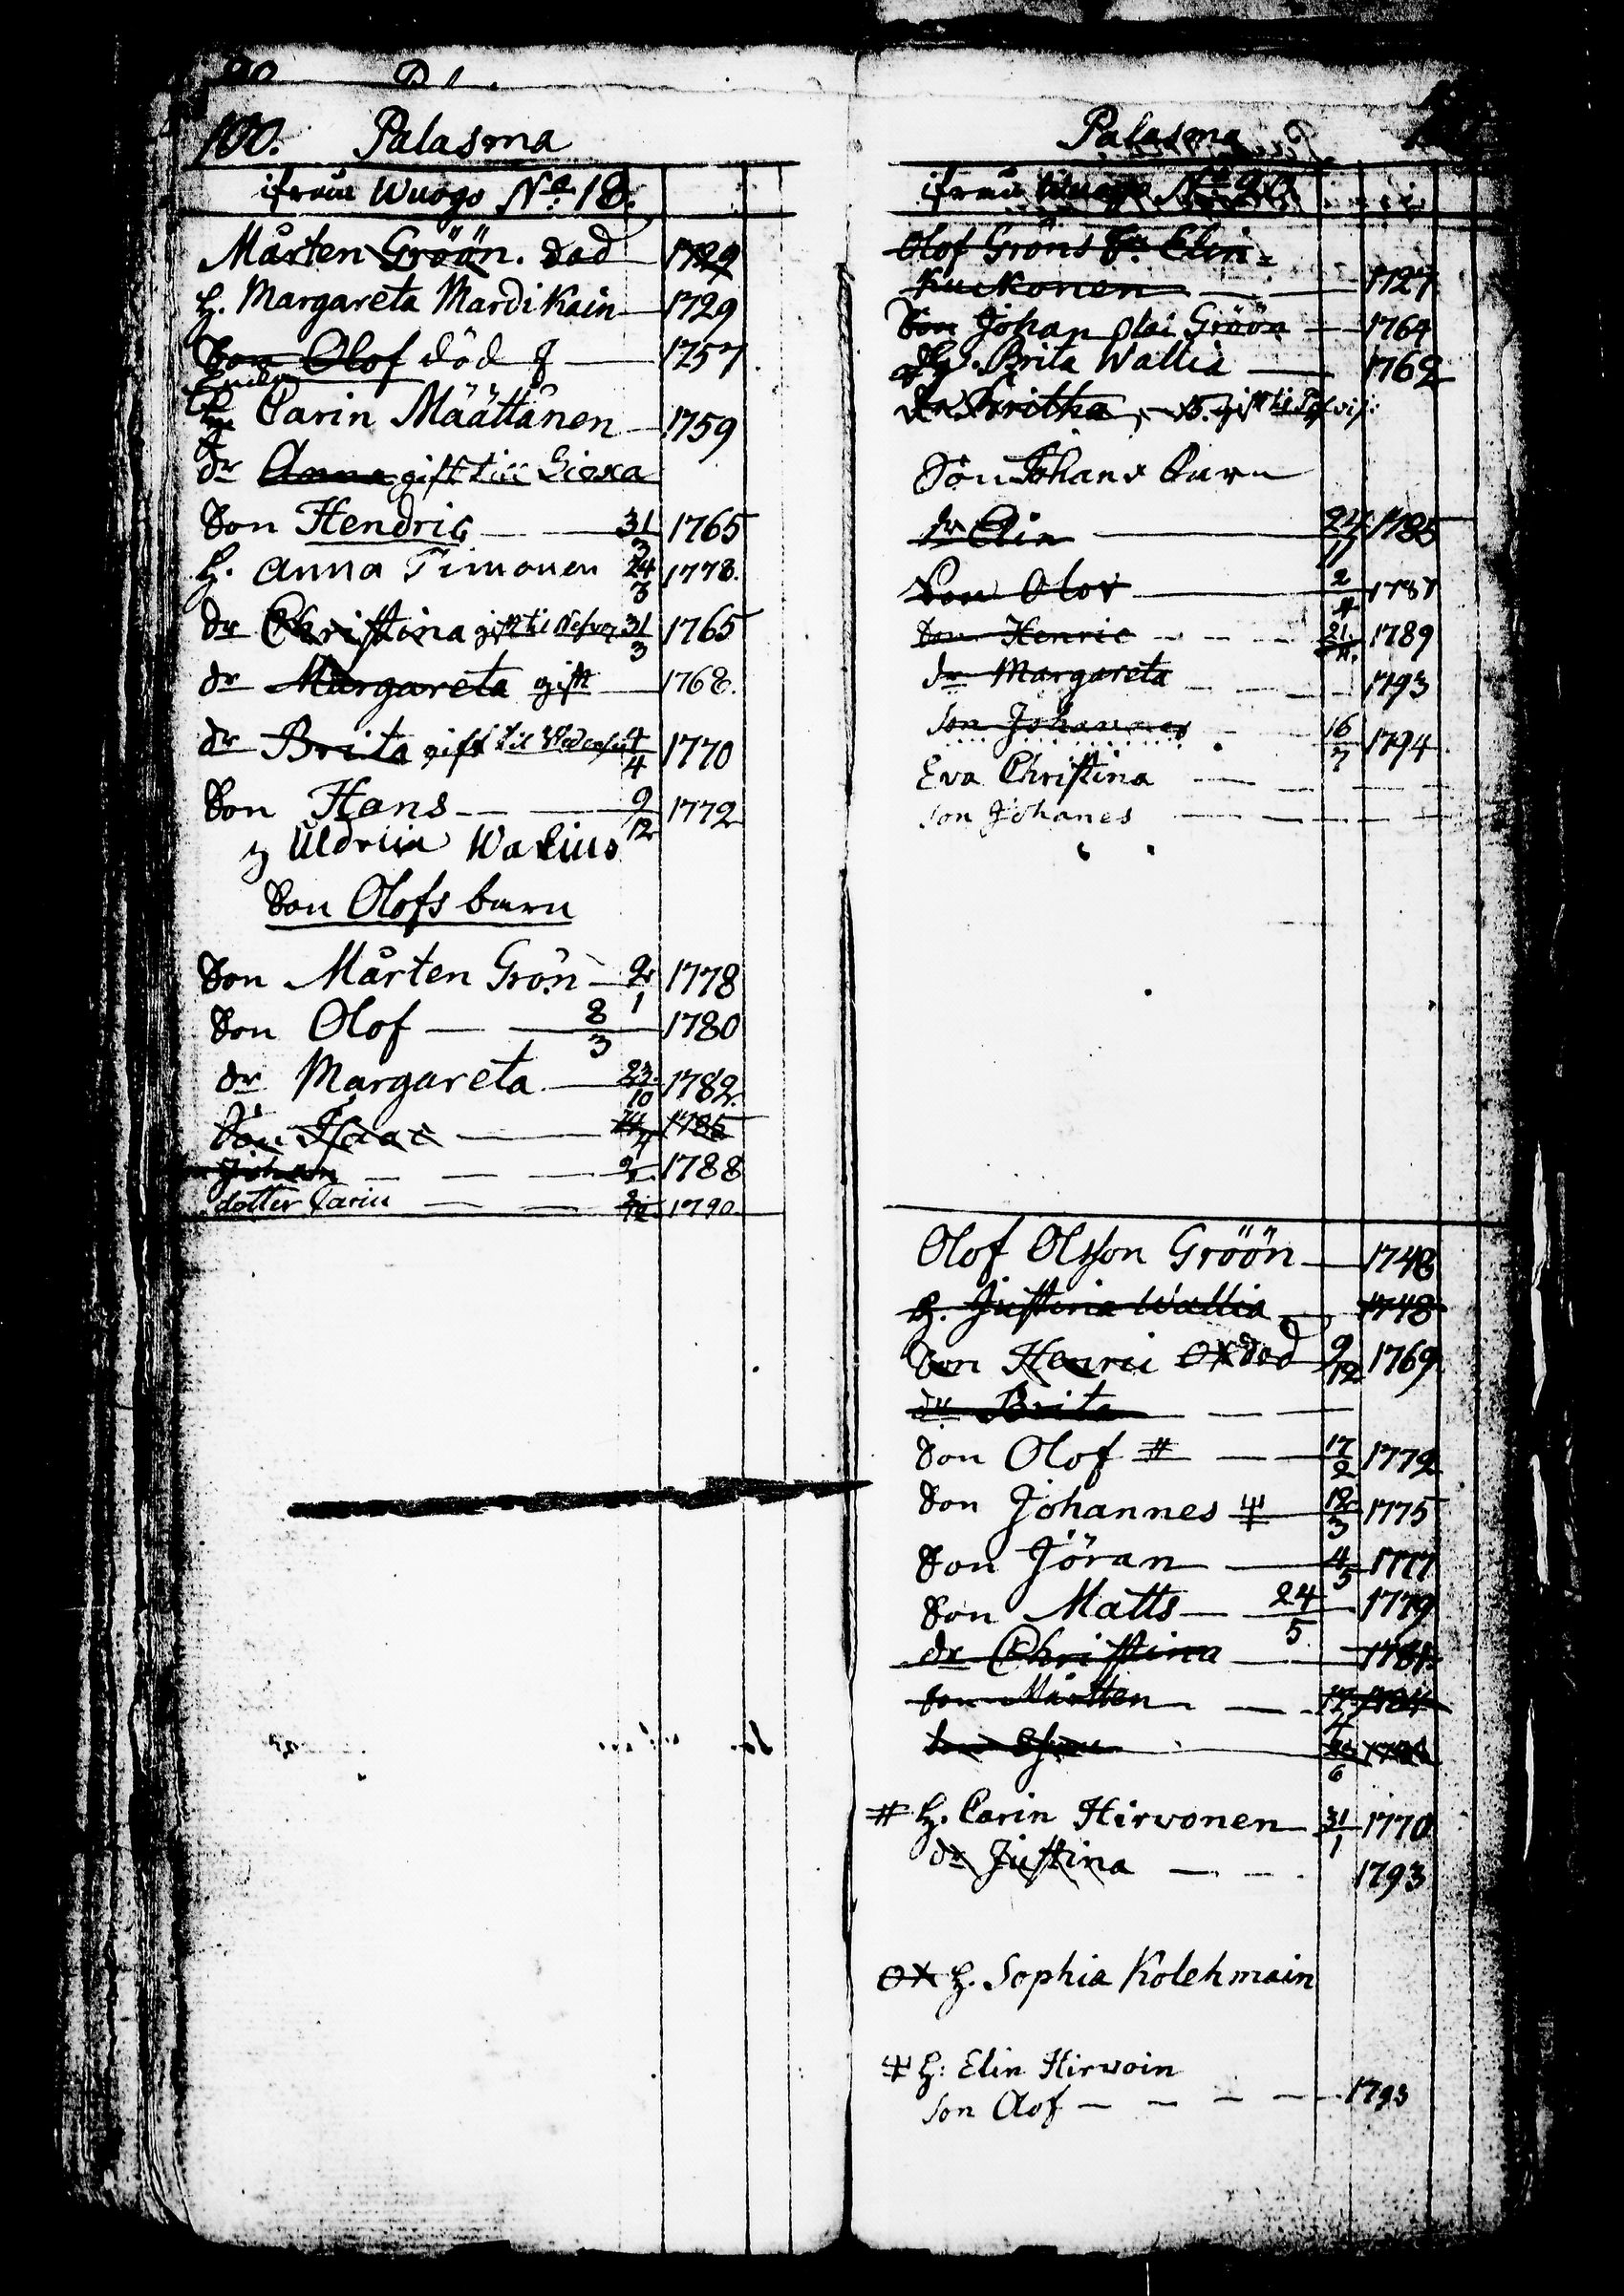 100. Palasma
ifrån Wuogo No 18.
Mårten Gröön. död 1729
h. Margareta Mardikain 1729
Son Olof död 1757
Enka Carin Määttänen 1759
dr Anna gift till Liexa
Son Hendric 31/3 1765
h. Anna Timonen 24/3 1778.
dr Christina gift til 31/3 1765
dr Margareta gift 1768.
dr Brita gift til 4 1770
Son Hans 9/12 1772
h Uldrica Walius
Son Olofs barn
Son Mårten Grön 2/1 1778
Son Olof 8/3 1780
dr Margareta 23/10 1782.
Son Isaac 1785
Johan 2 1788
dotter Carin 1790.
Palasma
ifrån Wuogo No 20
Olof Gröns Elin
Kuckonen 1727
Son Johan Olai Gröön 1764
Hu. Brita Wallia 1762
dr. Britha gift til
Son Johans barn
dr Elin 24/11 1785
Son Olof 2/4 1787
Son Henric 21 1789
dr Margareta 1793
Son Johannes 16/7 1794
Eva Christina
Son Johanes
Olof Olsson Gröön 1748
h. Justina Wallia 1748
Son Henric OX död 9/12 1769
dr Brita
Son Olof # 17/2 1772
Son Johannes 12/3 1775
Son Jöran 4/5 1777
Son Matts 24/5 1779
dr Christina 1781
Son Mårtten 1784
Son 6
# h. Carin Hirvonen 31/1 1770
dr Justina 1793
OX h. Sophia Kolehmain
h: Elin Hirvoin
Son Olof 1793